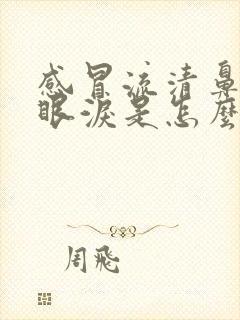 感冒流清鼻
眼淚是怎麼
周飛